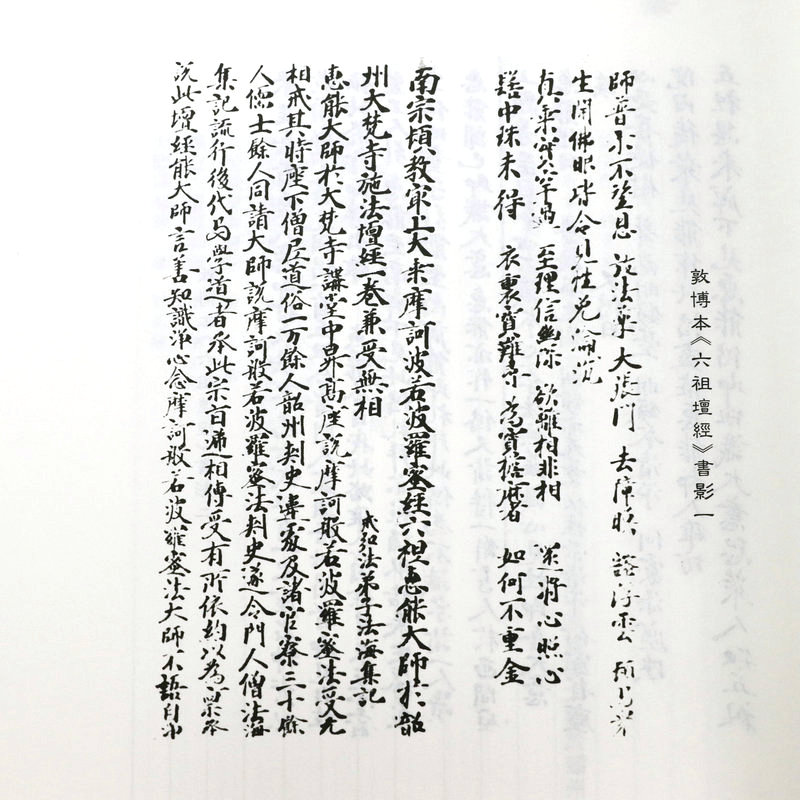 敦博本《六祖壇經》書影一
師普不不望恩 施法藥大張門 去障眼 證浮雲
生開佛眼皆令見性免淪沉
至理信幽深 欲離相非相 還將心照心
髻中珠未得 衣裏寶難守 為寶抵磨著 如何不重金
南宗頓教㝡上大乘摩訶波若波羅蜜經六祖惠能大師於韶
州大梵寺施法壇經一卷兼受無相
戒弘法弟子法海集記
惠能大師於大梵寺講堂中昇高座說摩訶般若波羅蜜法受无
相戒其時座下僧尼道俗一万餘人韶州刾史違處及諸官寮三十餘
人儒士餘人同請大師說摩訶般若波羅蜜法刾史遂令門人僧法海
集記流行後代与學道者承此宗旨遞相傳受有所依約以為稟承
說此壇經能大師言善知識淨心念摩訶般若波羅蜜法大師不語自淨